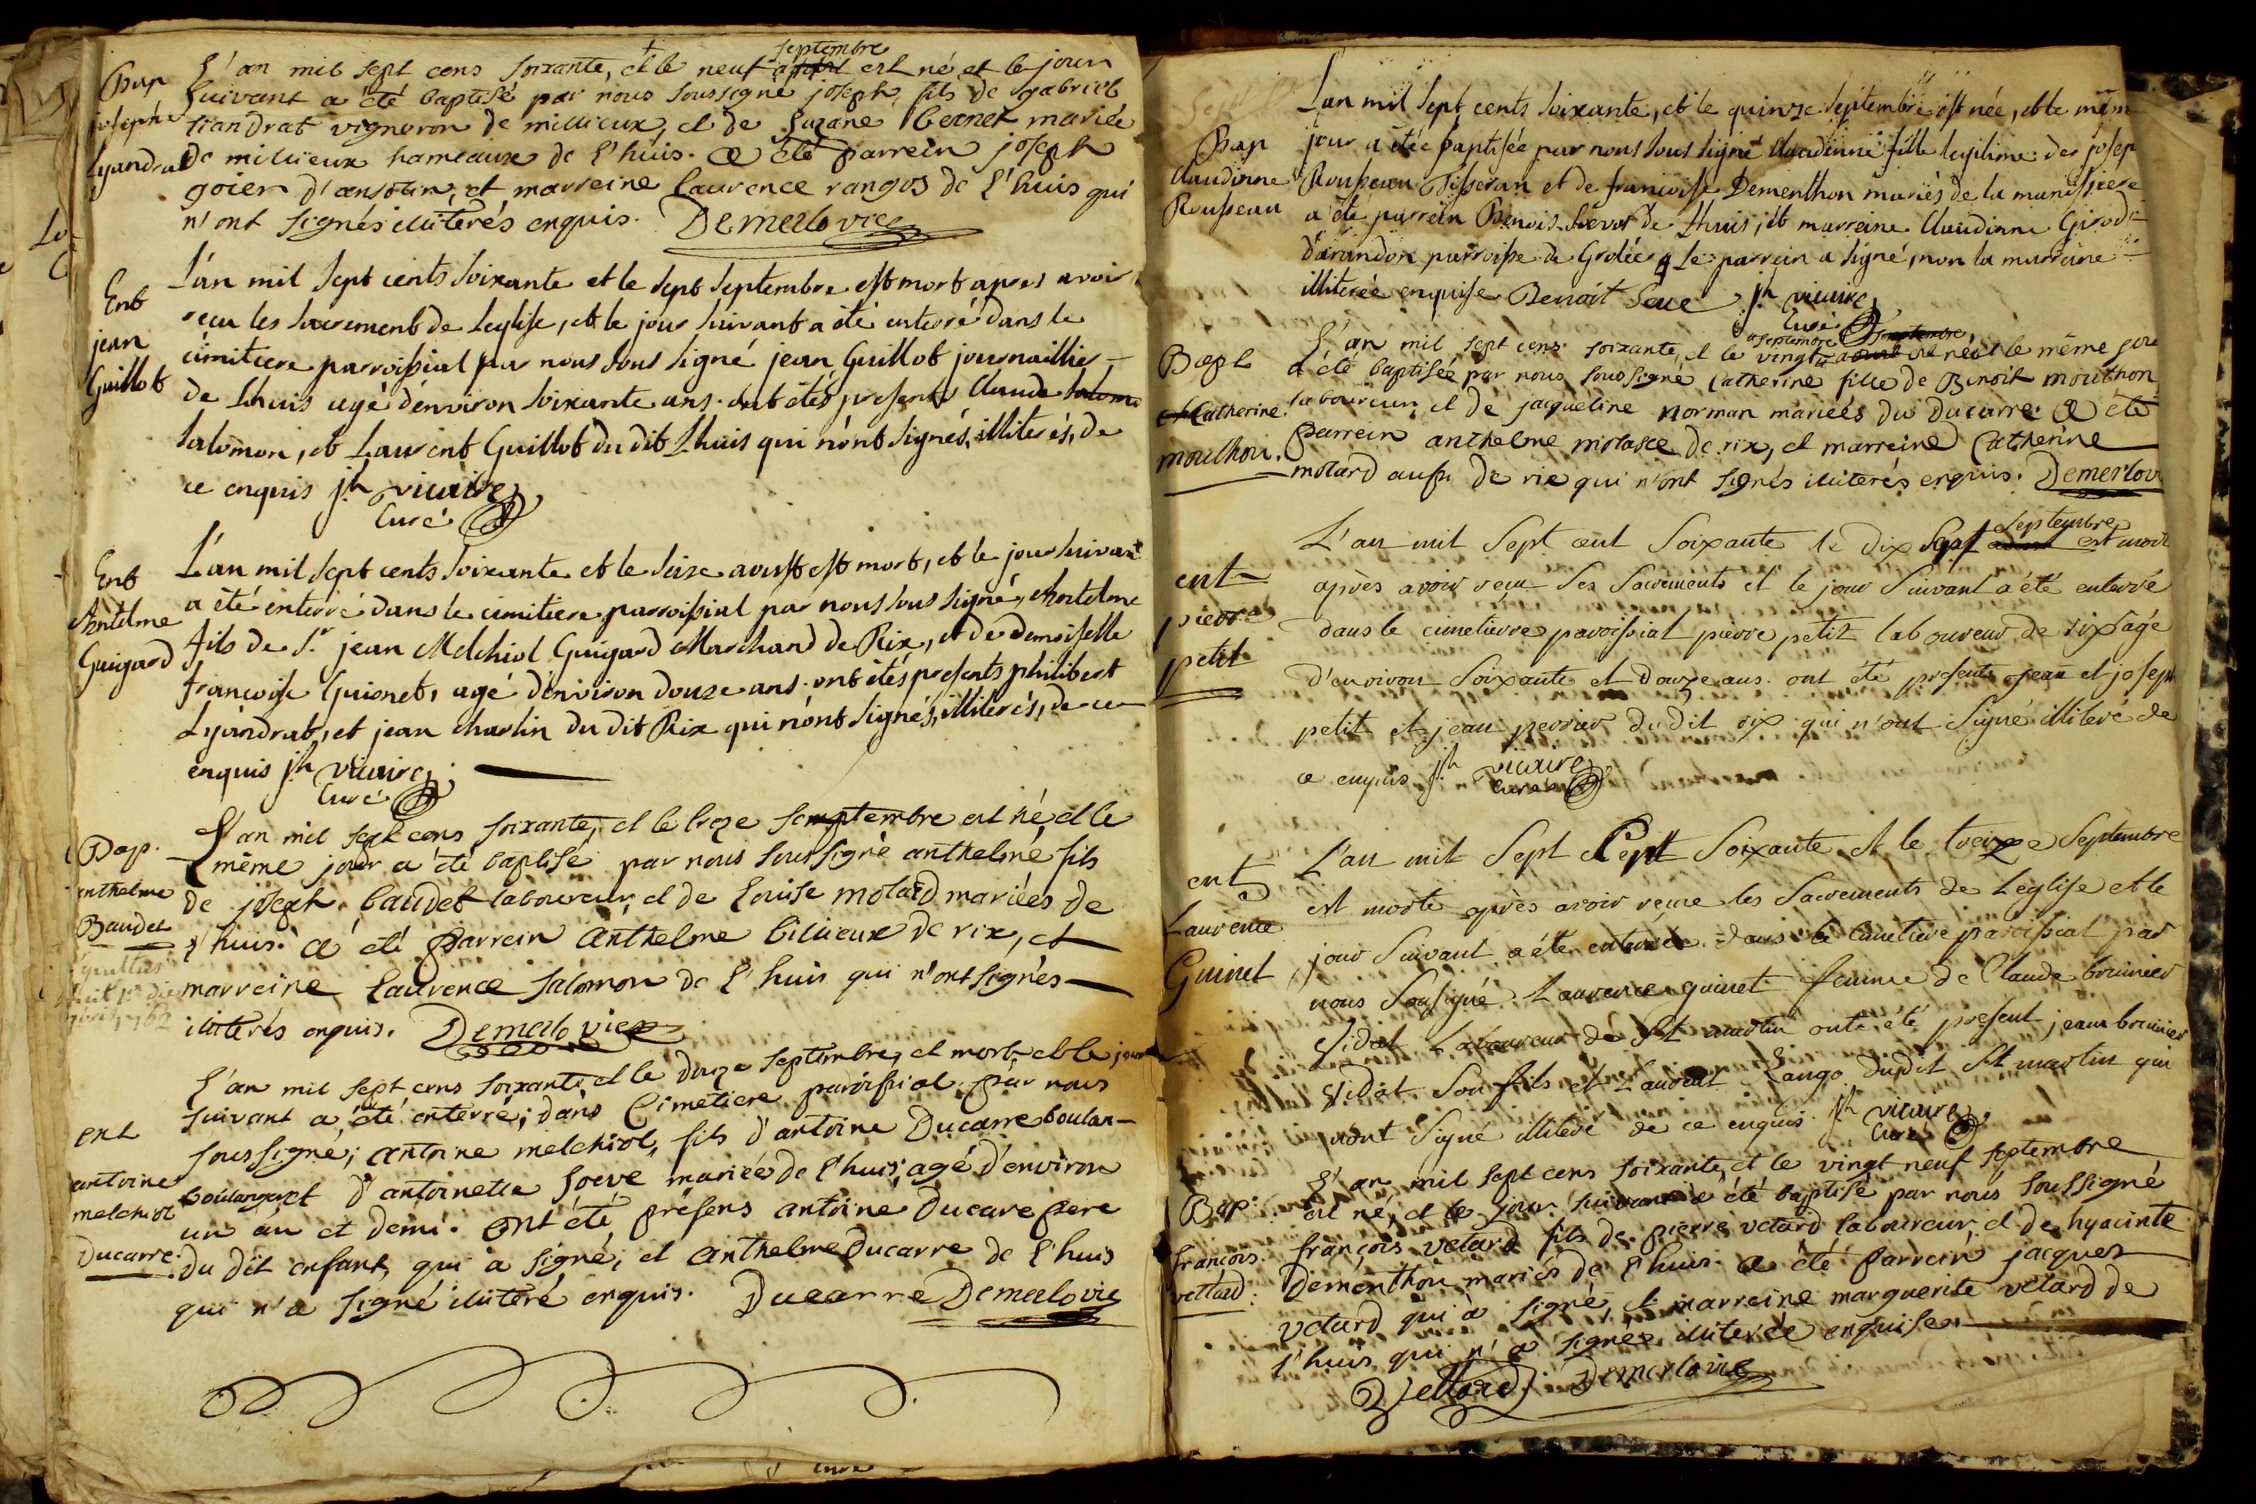 Bap
joseph
Lyandrat
septembre
L'an mil sept cens soixante, et le neuf est né et le jour
suivant a été baptisé par nous soussigné joseph, fils de gabriel
liandrat vigneron de millieux, et de suzane bernet mariés
de millieux hameaux de l'huis. a été parrein joseph
goier d'ansolin, et marreine laurence rangos de l'huis qui
n'ont signés illiterés enquis. Demerlo vic
Ent
jean
Guillot
L'an mil sept cents soixante et le sept septembre est mort apres avoir
reçu les sacrement de leglise, et le jour suivant a été enterré dans le
cimitiere parroissial par nous sous signé jean Guillot journaillier
de Lhuis agé d'environ soixante ans. ont étés presents Claude salomo
salomon, et Laurent Guillot du dit Lhuis qui n'ont signés, illiterés, de
ce enquis jh vicaire
Curé
Ent
Antelme
Guigard
L'an mil sept cents soixante et le seize aoust est mort, et le jour suivant
a été enterré dans le cimitiere parroissial par nous sous signé, Antelme
fils de Sr jean Melchiol Guigard Marchand de Rix, et de demoiselle
francoise Guionet, agé d'environ douze ans. ont étés presents philibert
Lyandrat, et jean Charlin du dit Rix qui n'ont signés, illiterés, de ce
enquis jh vicaire
Curé
Bap.
enthelme
Baudet
L'an mil sept cens soixante, et le treze septembre est né et le
même jour a été baptisé par nous soussigné anthelme fils
de joseph baudet laboureur, et de Louise molard mariées de
l'huis. a été parrein anthelme billieux de rix, et
marreine laurence salomon de l'huis qui n'ont signés
illiterés enquis. Demerlo vic
ent
antoine
melchiol
Ducarre.
L'an mil sept cens soixante et le douze septembre, et mort et le jour
suivant a été enterré, dans cimetiere paroissial par nous
soussigné, antoine melchiol, fils d'antoine Ducarre boulan-
boulanger et d'antoinette soeve mariée de l'huis, agé d'environ
un an et demi. ont été présens antoine Ducare pere
du dit enfant, qui a signé, et anthelme Ducarre de l'huis
qui n'a signé illiteré enquis. Ducarre Demerlo vic
Bap
Claudinne
Rousseau
L'an mil sept cents soixante, et le quinze septembre est née, et le mêm
jour a étée baptisée par nous sous signé Claudinne fille legitime de josep
Rousseau Tisseran et de francoise Dementhon mariés de la
a été parrein Benois soeve de Lhuis, et marreine Claudinne Girod
d'arandon parroisse de Grolée Le parrein a signé, non la marreine
illiterée enquise Benoit Seve jh vicaire
Curé
Bapt
Catherine
mouthon.
septembre
L'an mil sept cens soixante, et le vingt est née et le même jour
a été baptisée par nous soussigné Catherine fille de Benoit mouthon
laboureur, et de jacqueline norman mariées du Ducarre. a été
parrein anthelme molasce de rix, et marreine Catherine
molard aussi de rix qui n'ont signés illiterés enquis. Demerlovi
ent
pierre
petit
septembre
L'an mil sept cent soixante le dix sept est mort
après avoir reçu ses sacrements et le jour suivant a été enterré
dans le cimetierre paroissial pierre petit laboureur de rix agé
d'environ soixante et douze ans. ont été presents jean et joseph
petit et jean perrier dudit rix qui n'ont signé illiteré de
ce enquis jh vicaire
Curé
ent
Laurence
Guinet
L'an mil sept cept soixante et le treize septembre
est morte après avoir reçue les sacrements de Leglise et le
jour suivant a été enterrée dans le cimetiere paroissial par
nous sousigné Laurence guinet femme de Claude brunier
vidat Laboureur de St martin onts été present jean brunier
vidat son fils et Laurent Rango dudit St martin qui
n'ont signé illiteré de ce enquis jh vicaire
Curé
Bap.
françois.
vettard.
L'an mil sept cens soixante, et le vingt neuf septembre
est né, et le jour suivant a été baptisé par nous soussigné
françois vetard fils de pierre vetard laboureur et de hyacinte
Dementhon mariés de l'huis. a été parrein jacques
vetard qui a signé, et marreine marguerite vetard de
l'huis qui n'a signée illiterée enquise.
Vettard Demerlo vic